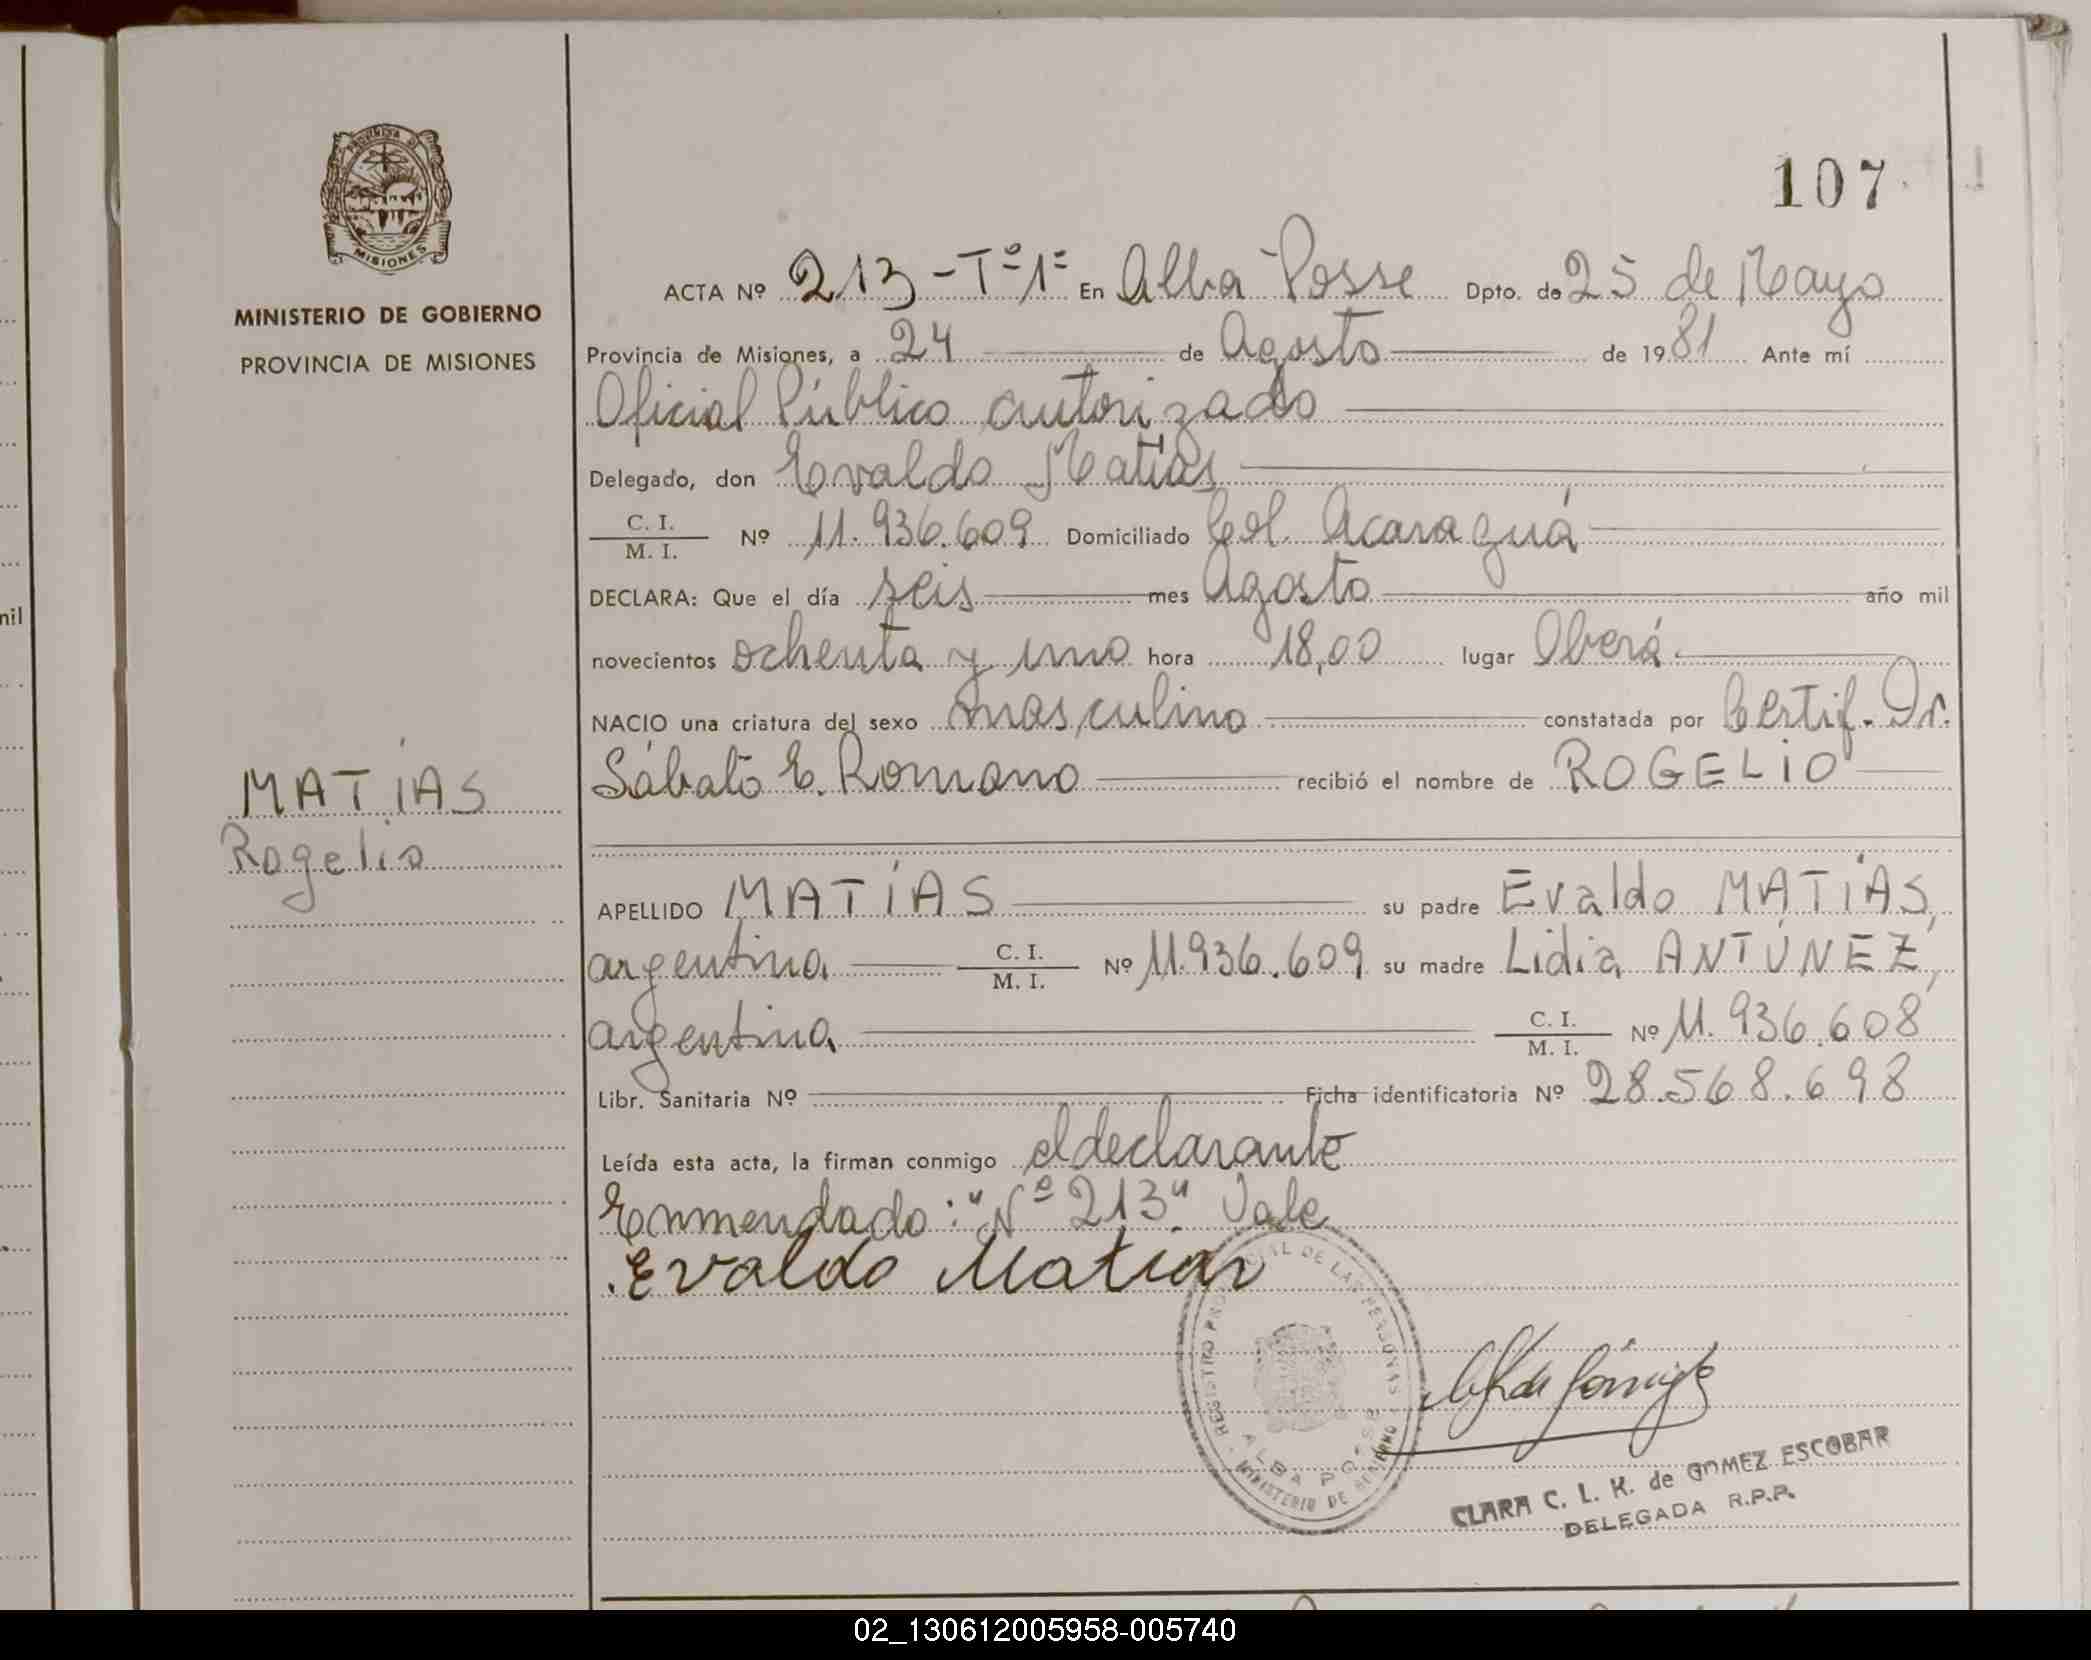 107
PROVINCIA DE
MISIONES
MINISTERIO DE GOBIERNO
PROVINCIA DE MISIONES
ACTA Nº 213 - Tº 1º En Alba Posse Dpto. de 25 de Mayo
Provincia de Misiones, a 24 de Agosto de 1981 Ante mí
Oficial Público autorizado
Delegado, don Evaldo Matías
C. I. / M. I. Nº 11.936.609 Domiciliado Col. Acaraguá
DECLARA: Que el día seis mes Agosto año mil
novecientos ochenta y uno hora 18,00 lugar Oberá
NACIO una criatura del sexo masculino constatada por Certif. Dr.
Sábato E. Romano recibió el nombre de ROGELIO
MATÍAS
Rogelio
APELLIDO MATÍAS su padre Evaldo MATÍAS,
argentina C. I. / M. I. Nº 11.936.609 su madre Lidia ANTÚNEZ,
argentina C. I. / M. I. Nº 11.936.608
Libr. Sanitaria Nº Ficha identificatoria Nº 28.568.698
Leída esta acta, la firman conmigo el declarante
Enmendado: "Nº 213" Vale
Evaldo Matias
REGISTRO PROVINCIAL DE LAS PERSONAS
ALBA POSSE
MINISTERIO DE GOBIERNO
CLARA C. L. K. de GOMEZ ESCOBAR
DELEGADA R.P.P.
nil
02_130612005958-005740